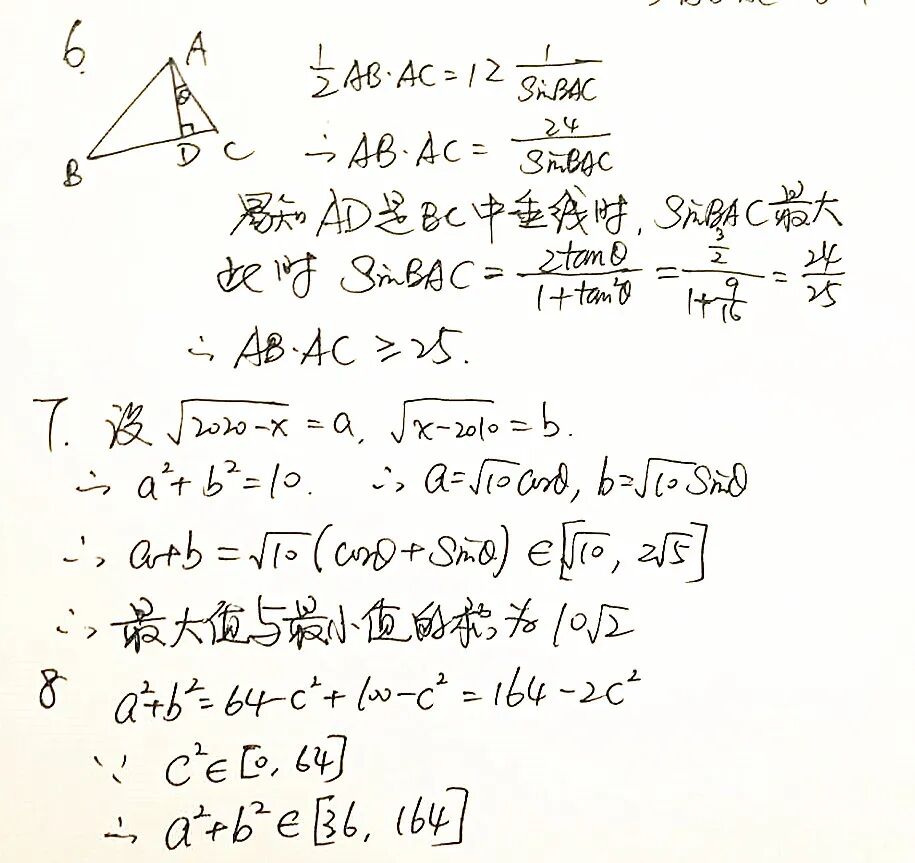 6.
A
θ
B
D
C
1/2 AB·AC=12 1/SinBAC
∴ AB·AC = 24/SinBAC
易知AD是BC中垂线时,SinBAC最大
此时 SinBAC = 2tanθ/(1+tan²θ) = (3/2)/(1+9/16) = 24/25
∴ AB·AC ≥ 25.
7. 设 √(2020-x) = a, √(x-2010) = b.
∴ a²+b²=10. ∴ a=√10 cosθ, b=√10 Sinθ
∴ a+b = √10 (cosθ+Sinθ) ∈ [√10, 2√5]
∴ 最大值与最小值的积为 10√2
8 a²+b²=64-c²+100-c²=164-2c²
∵ c²∈[0, 64]
∴ a²+b²∈[36, 164]